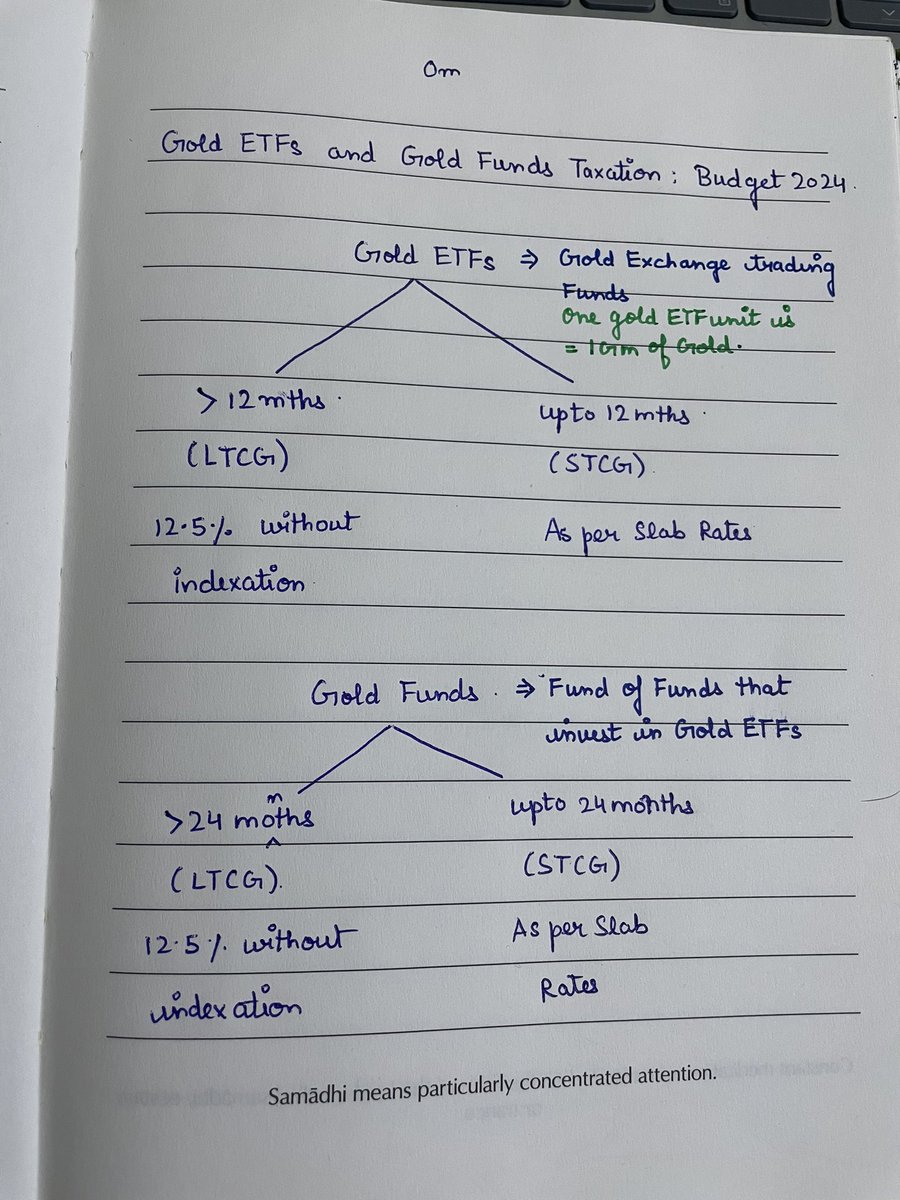 Om
Gold ETFs and Gold Funds Taxation: Budget 2024.
Gold ETFs ⇒ Gold Exchange trading
Funds
One gold ETF unit is
= 1 Gm of Gold.
>12 mths.
upto 12 mths.
(LTCG)
(STCG)
12.5% without
As per Slab Rates
indexation
Gold Funds. ⇒ Fund of Funds that
invest in Gold ETFs
n
>24 moths
^
upto 24 months
(LTCG).
(STCG)
12.5% without
As per Slab
indexation
Rates
Samādhi means particularly concentrated attention.